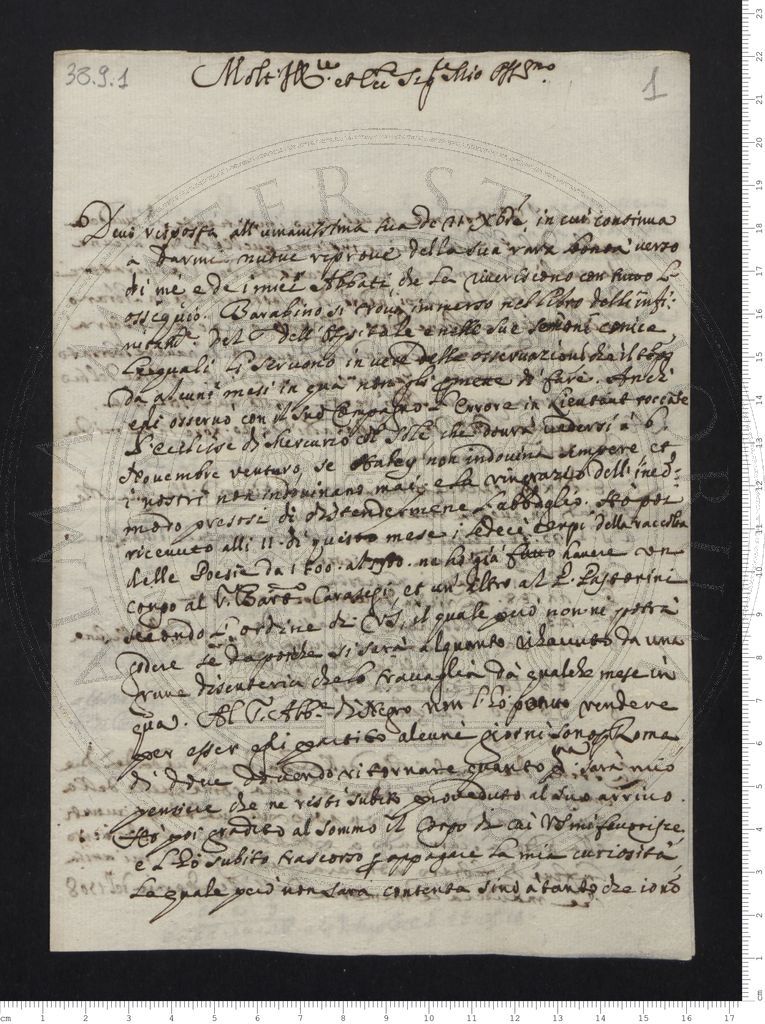 38.9.1
1
Molt' Ill.re et Ecc. Sig.r Mio Oss.mo
Devo risposta all'umanissima sua de 21. Xbre, in cui continua
a darmi nuove riprove della sua rara bontà verso
di me e de i miei Abbati che La riveriscono con tutto L'
ossequio. Barabino si trova immerso nel libro dell'infi-
nità del P. dell'Ospitale e nelle sue conice
Le quali Li servono in vece delle osservazioni che il tempo
da alcuni mesi in quà non gli permette di fare. Anch'
egli osservò con il suo Compagno L'errore in
L'eclisse di Mercurio col Sole che dovrà vedersi à 6
Novembre venturo, se Haley non indovina sempre, et
i nostri non indovinano mai, e La ringrazio dell'inco-
modo presosi di distendermene L'abbaglio. Hò poi
ricevuto alli 11. di questo mese i sedeci Corpi della raccolta
delle Poesie da 1500. al 1700. ne hò già fatto havere un
corpo al P. Bart. Carassi, et un altro al P. Pastorini
secondo L'ordine di VS, il quale però non ne potrà
godere se da poiche si serà alquanto rihavuto da una
grave disenteria che lo travaglia da qualche mese in
quà. Al P. Abb. di Negro non l'hò potuto rendere
per esser egli partito alcuni giorni sono p Roma
di dove dovendo ritornare quanto p.ma sarà mio
pensiere che ne resti subito proveduto al suo arrivo.
Hò poi gradito al sommo il Corpo di cui VS mi favorisce
e l'hò subito trascorso p appagare La mia curiosità
La quale però non sara contenta sino à tanto che io nõ